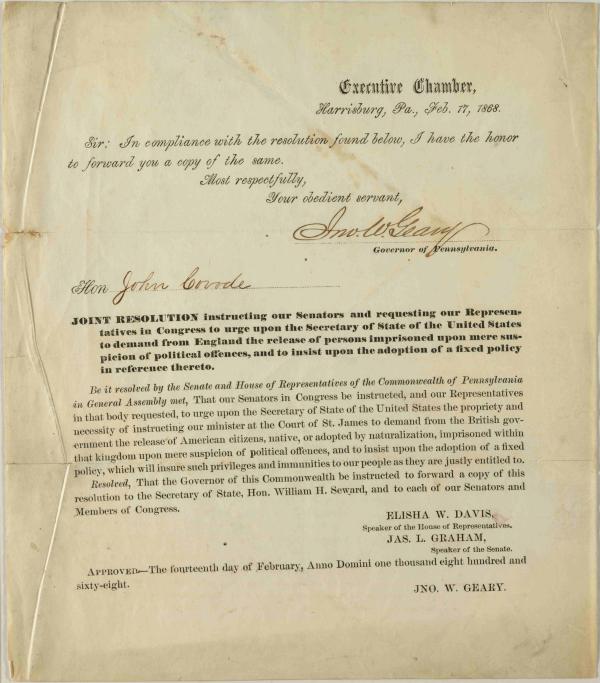 Executive Chamber,
Harrisburg, Pa., Feb. 17, 1868.
Sir: In compliance with the resolution found below, I have the honor
to forward you a copy of the same.
Most respectfully,
Your obedient servant,
Jno. W. Geary
Governor of Pennsylvania.
Hon John Covode
JOINT RESOLUTION instructing our Senators and requesting our Represen-
tatives in Congress to urge upon the Secretary of State of the United States
to demand from England the release of persons imprisoned upon mere sus-
picion of political offences, and to insist upon the adoption of a fixed policy
in reference thereto.
Be it resolved by the Senate and House of Representatives of the Commonwealth of Pennsylvania
in General Assembly met, That our Senators in Congress be instructed, and our Representatives
in that body requested, to urge upon the Secretary of State of the United States the propriety and
necessity of instructing our minister at the Court of St. James to demand from the British gov-
ernment the release of American citizens, native, or adopted by naturalization, imprisoned within
that kingdom upon mere suspicion of political offences, and to insist upon the adoption of a fixed
policy, which will insure such privileges and immunities to our people as they are justly entitled to.
Resolved, That the Governor of this Commonwealth be instructed to forward a copy of this
resolution to the Secretary of State, Hon. William H. Seward, and to each of our Senators and
Members of Congress.
ELISHA W. DAVIS,
Speaker of the House of Representatives.
JAS. L. GRAHAM,
Speaker of the Senate.
APPROVED—The fourteenth day of February, Anno Domini one thousand eight hundred and
sixty-eight.
JNO. W. GEARY.